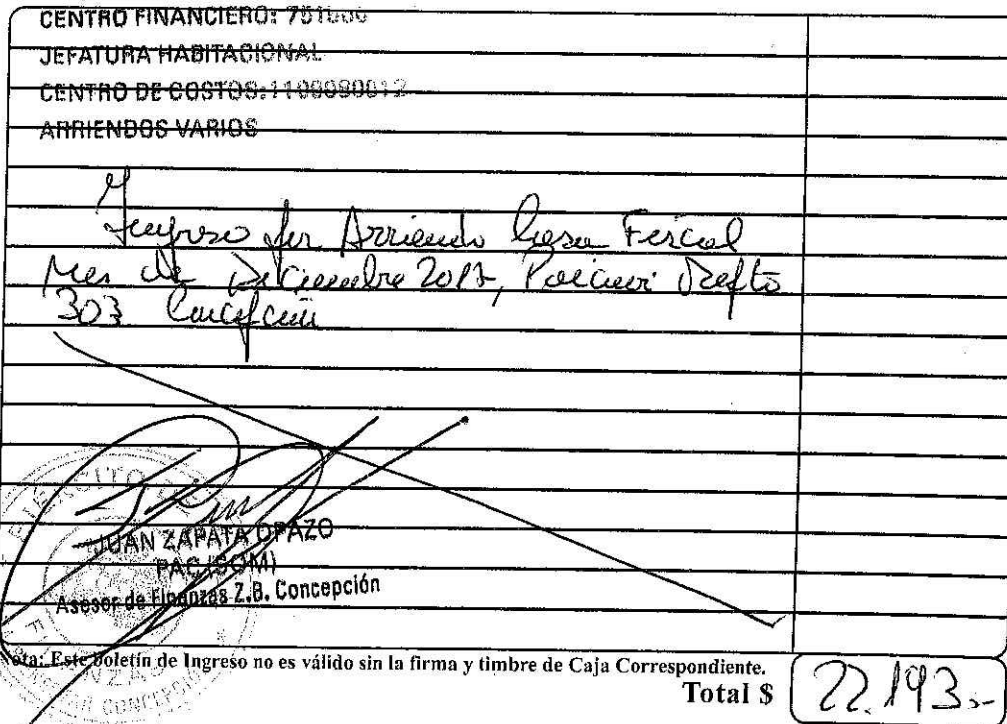 CENTRO FINANCIERO: 751000
JEFATURA HABITACIONAL
CENTRO DE COSTOS: 1109090012
ARRIENDOS VARIOS
Ingreso por Arriendo Casa Fiscal
Mes de Diciembre 2017, Depto
303 Concepción
EJERCITO
JUAN ZAPATA OPAZO
PAC (SOM)
Asesor de Finanzas Z.B. Concepción
Nota: Este Boletín de Ingreso no es válido sin la firma y timbre de Caja Correspondiente.
Total $ 22.193.-